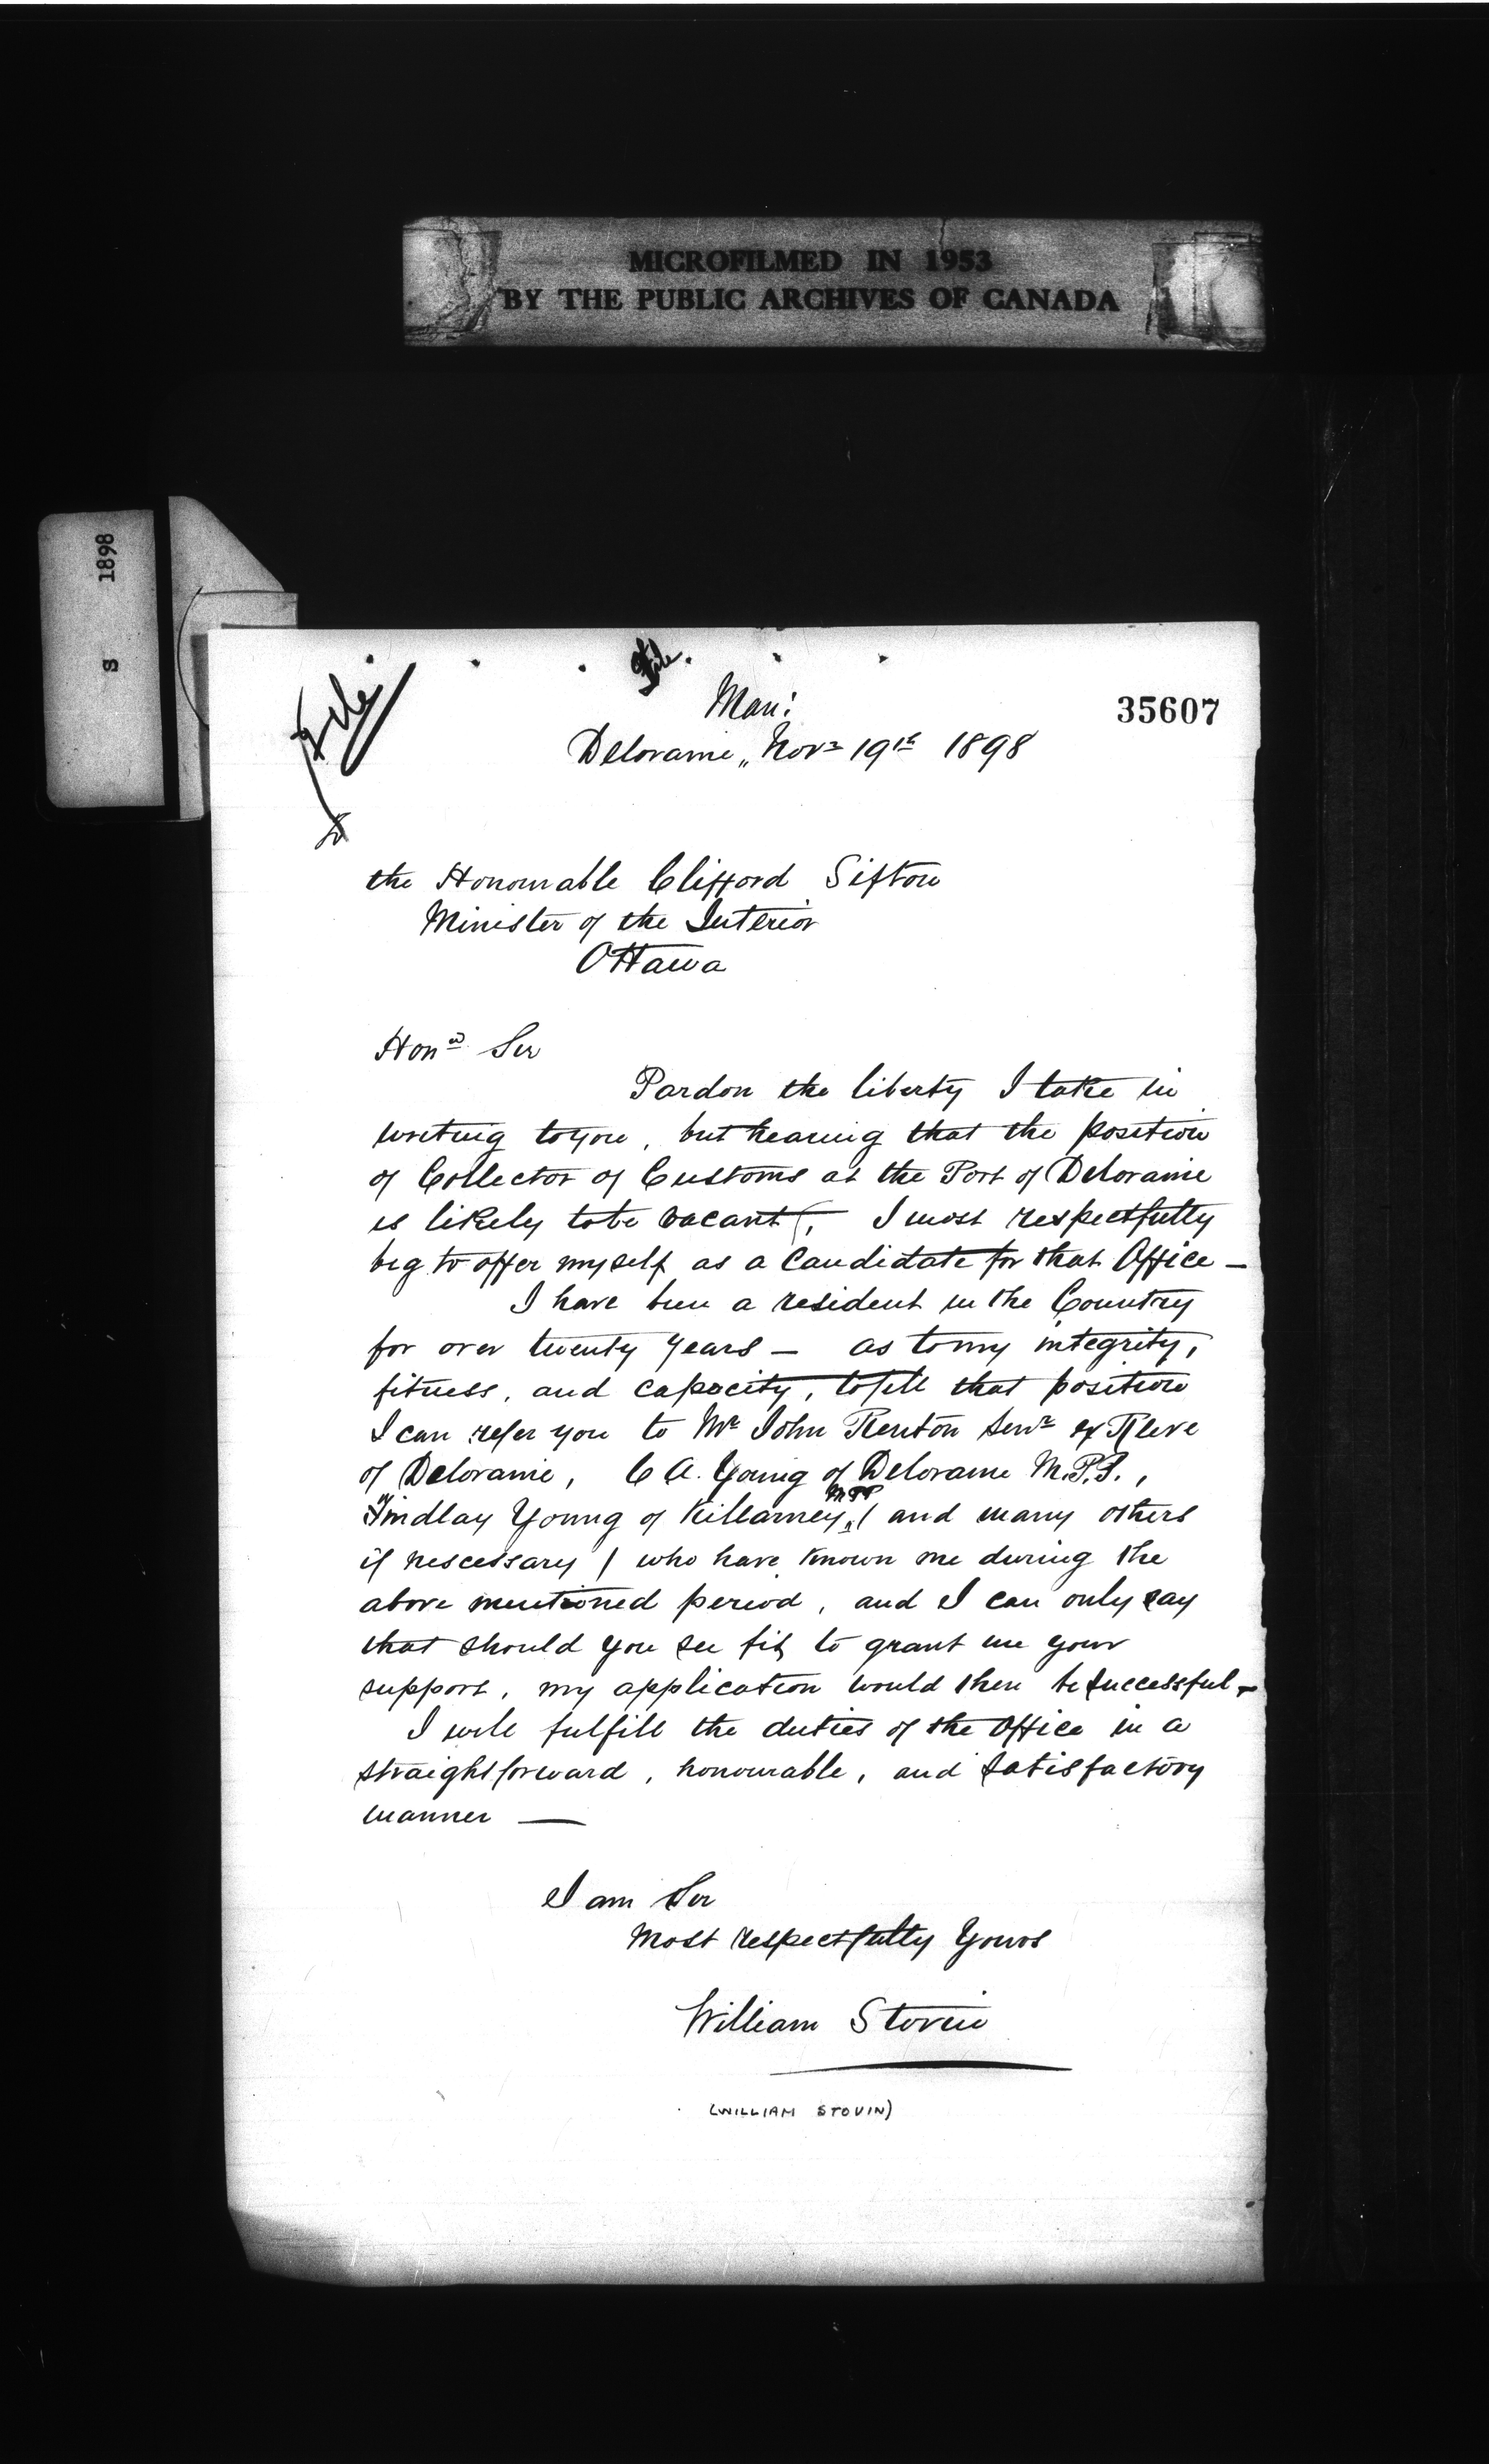 MICROFILMED IN 1953
BY THE PUBLIC ARCHIVES OF CANADA
S 1898
File.
File.
35607
Man:
Deloraine, Novr 19th 1898
the Honourable Clifford Sifton
Minister of the Interior
Ottawa
Hond Sir
Pardon the liberty I take in
writing to you, but hearing that the position
of Collector of Customs at the Port of Deloraine
is likely to be vacant, I most respectfully
beg to offer myself as a Candidate for that Office —
I have been a resident in the Country
for over twenty years — as to my integrity,
fitness, and capacity, to fill that position
I can refer you to Mr John Renton Senr ex Reeve
of Deloraine, C A. Young of Deloraine M.P.P.,
Findlay Young of Killarney, MPP ( and many others
if nescessary ) who have known me during the
above mentioned period, and I can only say
that should you see fit to grant me your
support, my application would then be successful —
I will fulfill the duties of the Office in a
straightforward, honourable, and satisfactory
manner —
I am Sir
Most respectfully Yours
William Stovin
(WILLIAM STOVIN)